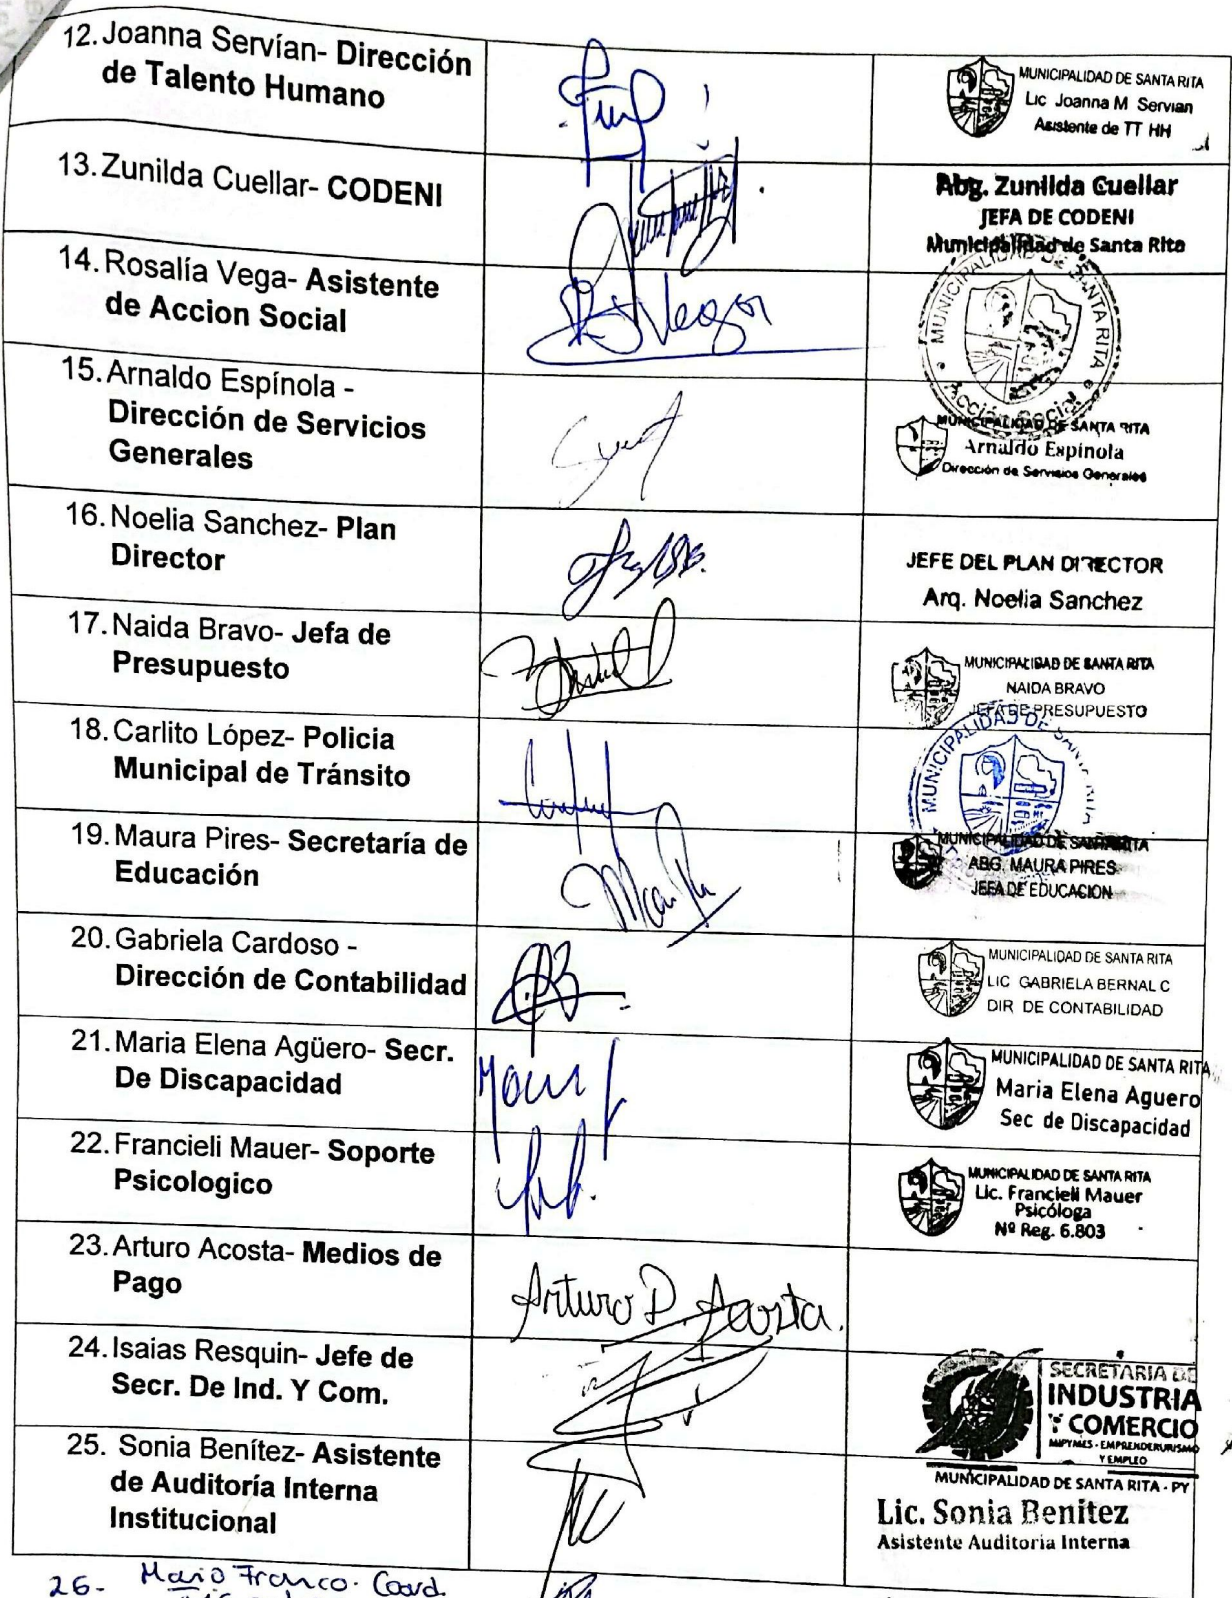 12. Joanna Servían- Dirección
de Talento Humano
MUNICIPALIDAD DE SANTA RITA
Lic Joanna M Servian
Asistente de TT HH
13. Zunilda Cuellar- CODENI
Abg. Zunilda Cuellar
JEFA DE CODENI
Municipalidad de Santa Rita
14. Rosalía Vega- Asistente
de Accion Social
MUNICIPALIDAD DE SANTA RITA
Acción Social
15. Arnaldo Espínola -
Dirección de Servicios
Generales
MUNICIPALIDAD DE SANTA RITA
Arnaldo Espínola
Dirección de Servicios Generales
16. Noelia Sanchez- Plan
Director
JEFE DEL PLAN DIRECTOR
Arq. Noelia Sanchez
17. Naida Bravo- Jefa de
Presupuesto
MUNICIPALIDAD DE SANTA RITA
NAIDA BRAVO
JEFA DE PRESUPUESTO
18. Carlito López- Policia
Municipal de Tránsito
MUNICIPALIDAD DE SANTA RITA
19. Maura Pires- Secretaría de
Educación
MUNICIPALIDAD DE SANTA RITA
ABG. MAURA PIRES
JEFA DE EDUCACION
20. Gabriela Cardoso -
Dirección de Contabilidad
MUNICIPALIDAD DE SANTA RITA
LIC GABRIELA BERNAL C
DIR DE CONTABILIDAD
21. Maria Elena Agüero- Secr.
De Discapacidad
MUNICIPALIDAD DE SANTA RITA
Maria Elena Aguero
Sec de Discapacidad
22. Francieli Mauer- Soporte
Psicologico
MUNICIPALIDAD DE SANTA RITA
Lic. Francieli Mauer
Psicóloga
Nº Reg. 6.803
23. Arturo Acosta- Medios de
Pago
Arturo D. Acosta.
24. Isaias Resquin- Jefe de
Secr. De Ind. Y Com.
SECRETARIA DE
INDUSTRIA
Y COMERCIO
MIPYMES - EMPRENDEDURISMO
Y EMPLEO
MUNICIPALIDAD DE SANTA RITA - PY
25. Sonia Benítez- Asistente
de Auditoría Interna
Institucional
Lic. Sonia Benitez
Asistente Auditoria Interna
26- Mario Franco. Coord.